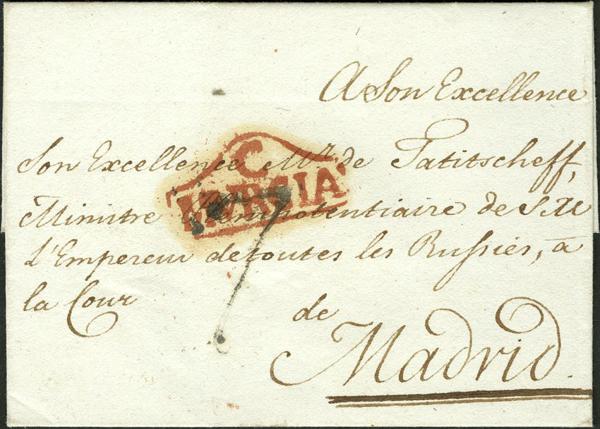 A Son Excellence
Son Excellence Mr. de Tatitscheff,
C
MURCIA
Ministre Plenipotentiaire de S. M.
l'Empereur de toutes les Russies, à
la Cour
de
Madrid.